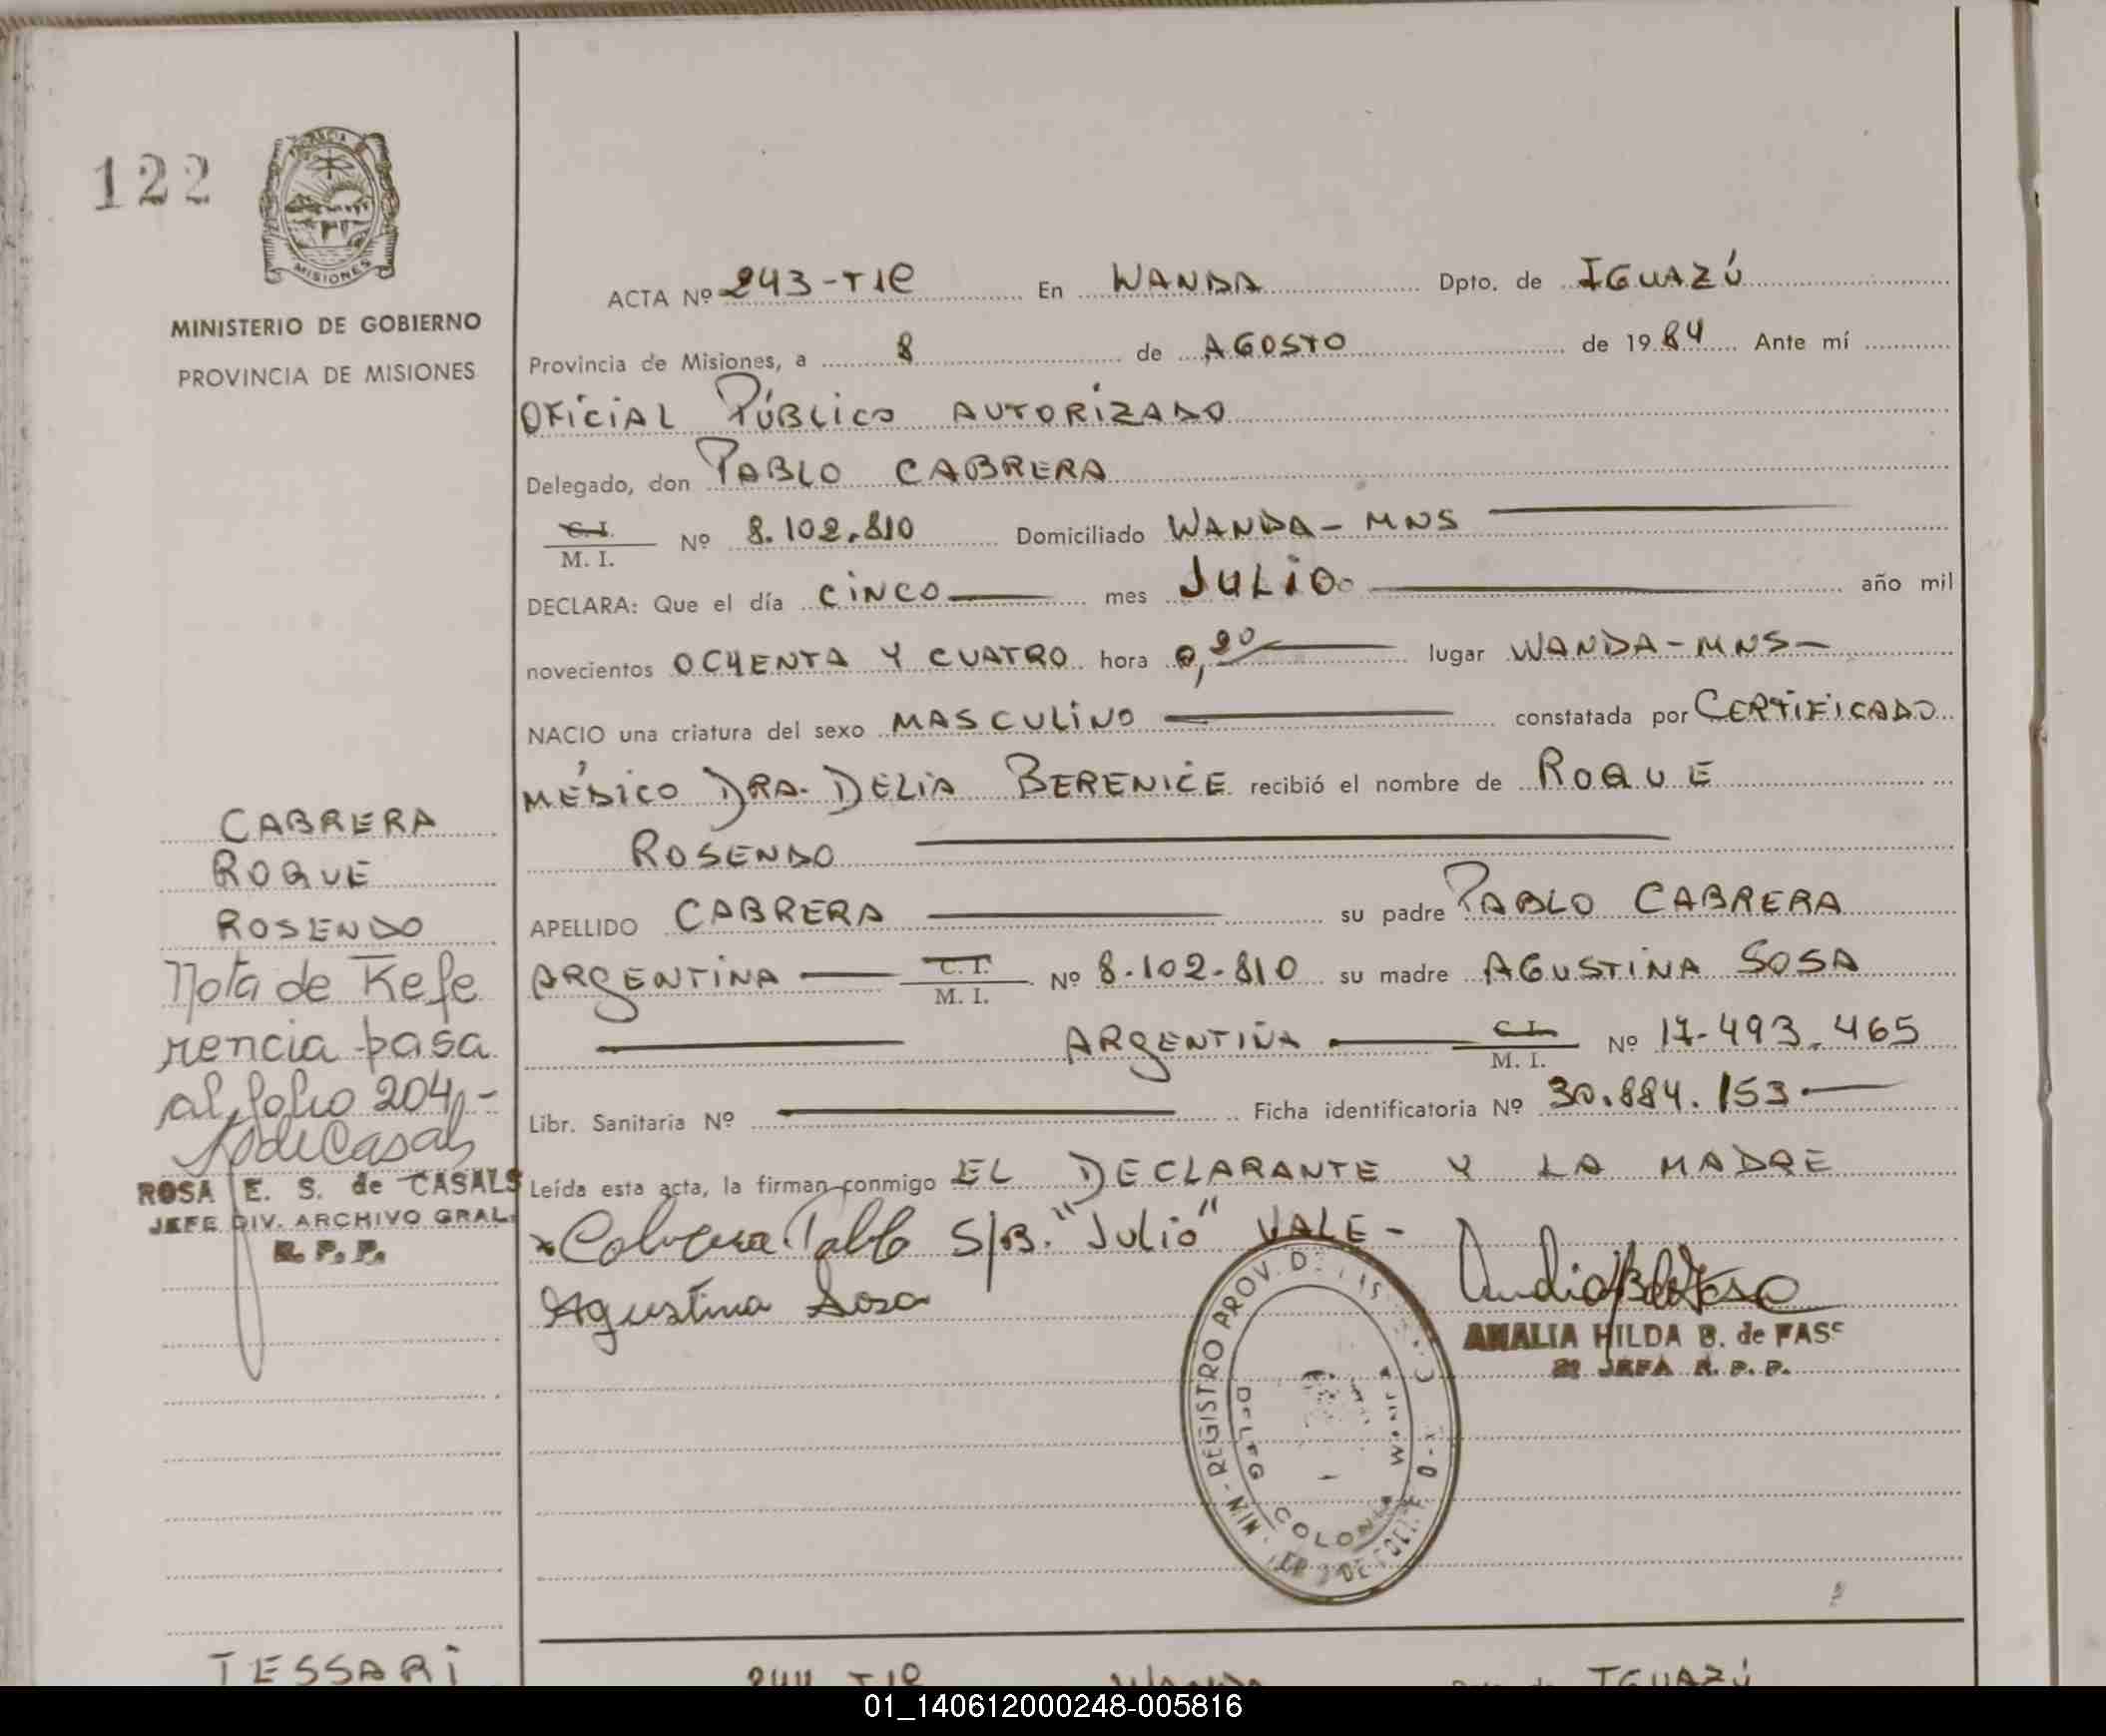 122
PROVINCIA DE
MISIONES
MINISTERIO DE GOBIERNO
PROVINCIA DE MISIONES
CABRERA
ROQUE
ROSENDO
Nota de Refe
rencia pasa
al folio 204,-
ROSA E. S. de CASALS
JEFE DIV. ARCHIVO GRAL.
R. P. P.
TESSARI
ACTA Nº 243-T1º En WANDA Dpto. de IGUAZÚ
Provincia de Misiones, a 8 de AGOSTO de 1984 Ante mí
OFICIAL PÚBLICO AUTORIZADO
Delegado, don PABLO CABRERA
C. I.
M. I. Nº 8.102.810 Domiciliado WANDA - MNS
DECLARA: Que el día CINCO mes JULIO año mil
novecientos OCHENTA Y CUATRO hora 0,20 lugar WANDA - MNS -
NACIO una criatura del sexo MASCULINO constatada por CERTIFICADO
MÉDICO DRA. DELIA BERENICE recibió el nombre de ROQUE
ROSENDO
APELLIDO CABRERA su padre PABLO CABRERA
ARGENTINA C. I. M. I. Nº 8.102.810 su madre AGUSTINA SOSA
ARGENTINA C. I. M. I. Nº 17.493.465
Libr. Sanitaria Nº Ficha identificatoria Nº 30.884.153
Leída esta acta, la firman conmigo EL DECLARANTE Y LA MADRE
Cabrera Pablo S/B. "Julio" VALE -
Agustina Sosa
AMALIA HILDA B. de FASS
2º JEFA R. P. P.
MIN. REGISTRO PROV. DE
DELEG COLONIA WANDA
244 T1º WANDA Dpto. de IGUAZÚ
01_140612000248-005816